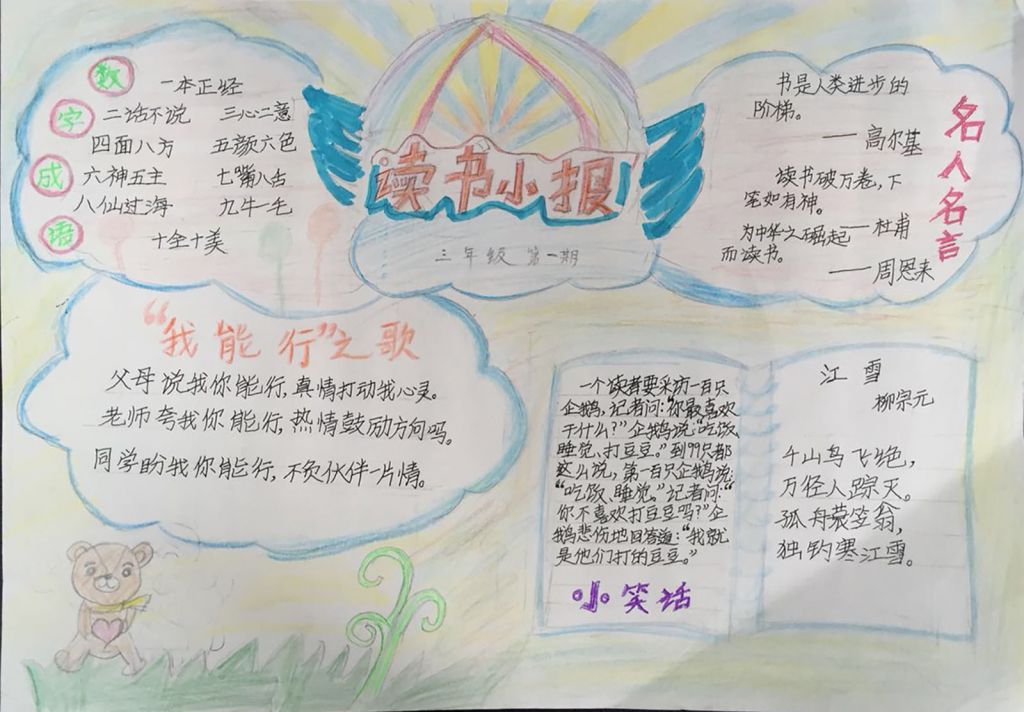 读书小报
三年级 第一期
数字成语
一本正经
二话不说 三心二意
四面八方 五颜六色
六神五主 七嘴八舌
八仙过海 九牛一毛
十全十美
名人名言
书是人类进步的
阶梯。
——高尔基
读书破万卷，下
笔如有神。
——杜甫
为中华之崛起
而读书。
——周恩来
“我能行”之歌
父母说我你能行，真情打动我心灵。
老师夸我你能行，热情鼓励方向吗。
同学盼我你能行，不负伙伴一片情。
一个读者要采访一百只
企鹅，记者问：“你最喜欢
干什么？”企鹅说：“吃饭、
睡觉、打豆豆。”到99只都
这么说，第一百只企鹅说：
“吃饭、睡觉。”记者问：“
你不喜欢打豆豆吗？”企
鹅悲伤地回答道：“我就
是他们打的豆豆。”
小笑话
江雪
柳宗元
千山鸟飞绝，
万径人踪灭。
孤舟蓑笠翁，
独钓寒江雪。